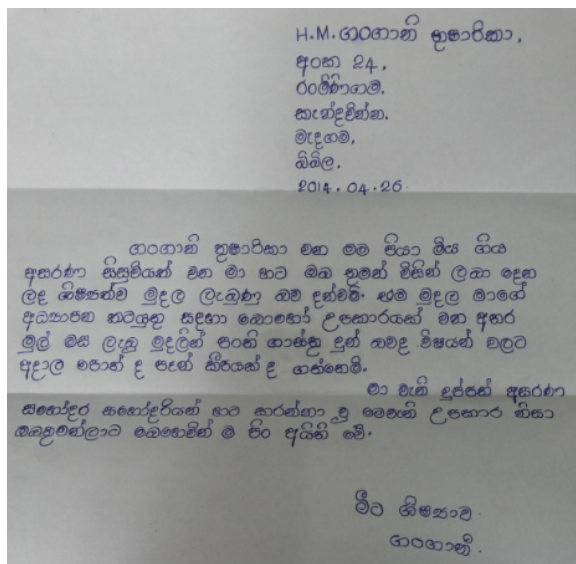 H.M. ගංගානි තුෂාරිකා,
අංක 24,
රංමිණිගම,
කැන්දවින්න,
මැදගම,
බිබිල.
2014.04.26.
ගංගානි තුෂාරිකා වන මම පියා මිය ගිය
අසරණ සිසුවියක් වන මා හට ඔබ තුමන් විසින් ලබා දෙන
ලද ශිෂ්‍යත්ව මුදල ලැබුණු බව දන්වමි. එම මුදල මාගේ
අධ්‍යාපන කටයුතු සඳහා බොහෝ උපකාරයක් වන අතර
මුල් මස ලැබූ මුදලින් පංති ගාස්තු දුන් තවද විෂයන් වලට
අදාල පොත් ද පෑන් කීපයක් ද ගත්තෙමි.
මා වැනි දුප්පත් අසරණ
සහෝදර සහෝදරියන් හට කරන්නා වූ මෙවැනි උපකාර නිසා
ඔබතුමන්ලාට බෙහෙවින් ම පිං අයිති වේ.
මීට ශිෂ්‍යාව.
ගංගානි.